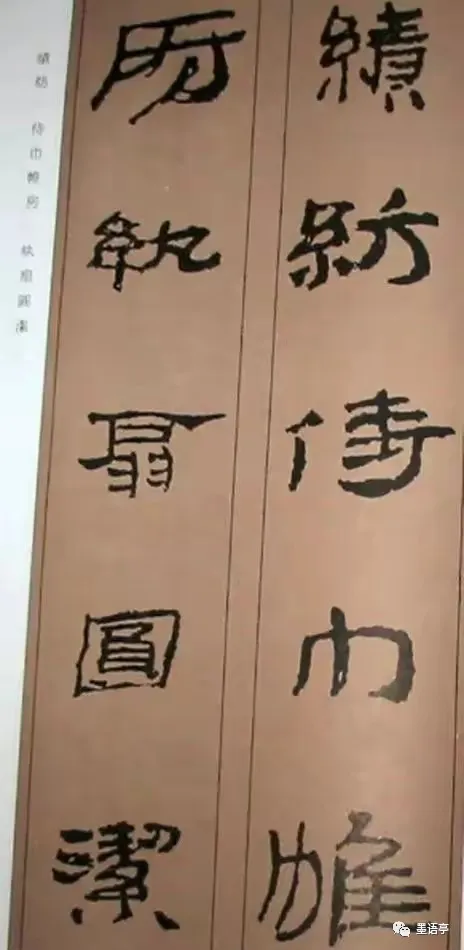 績紡侍巾帷
房紈扇圓潔
績紡 侍巾帷房 紈扇圓潔
墨语亭